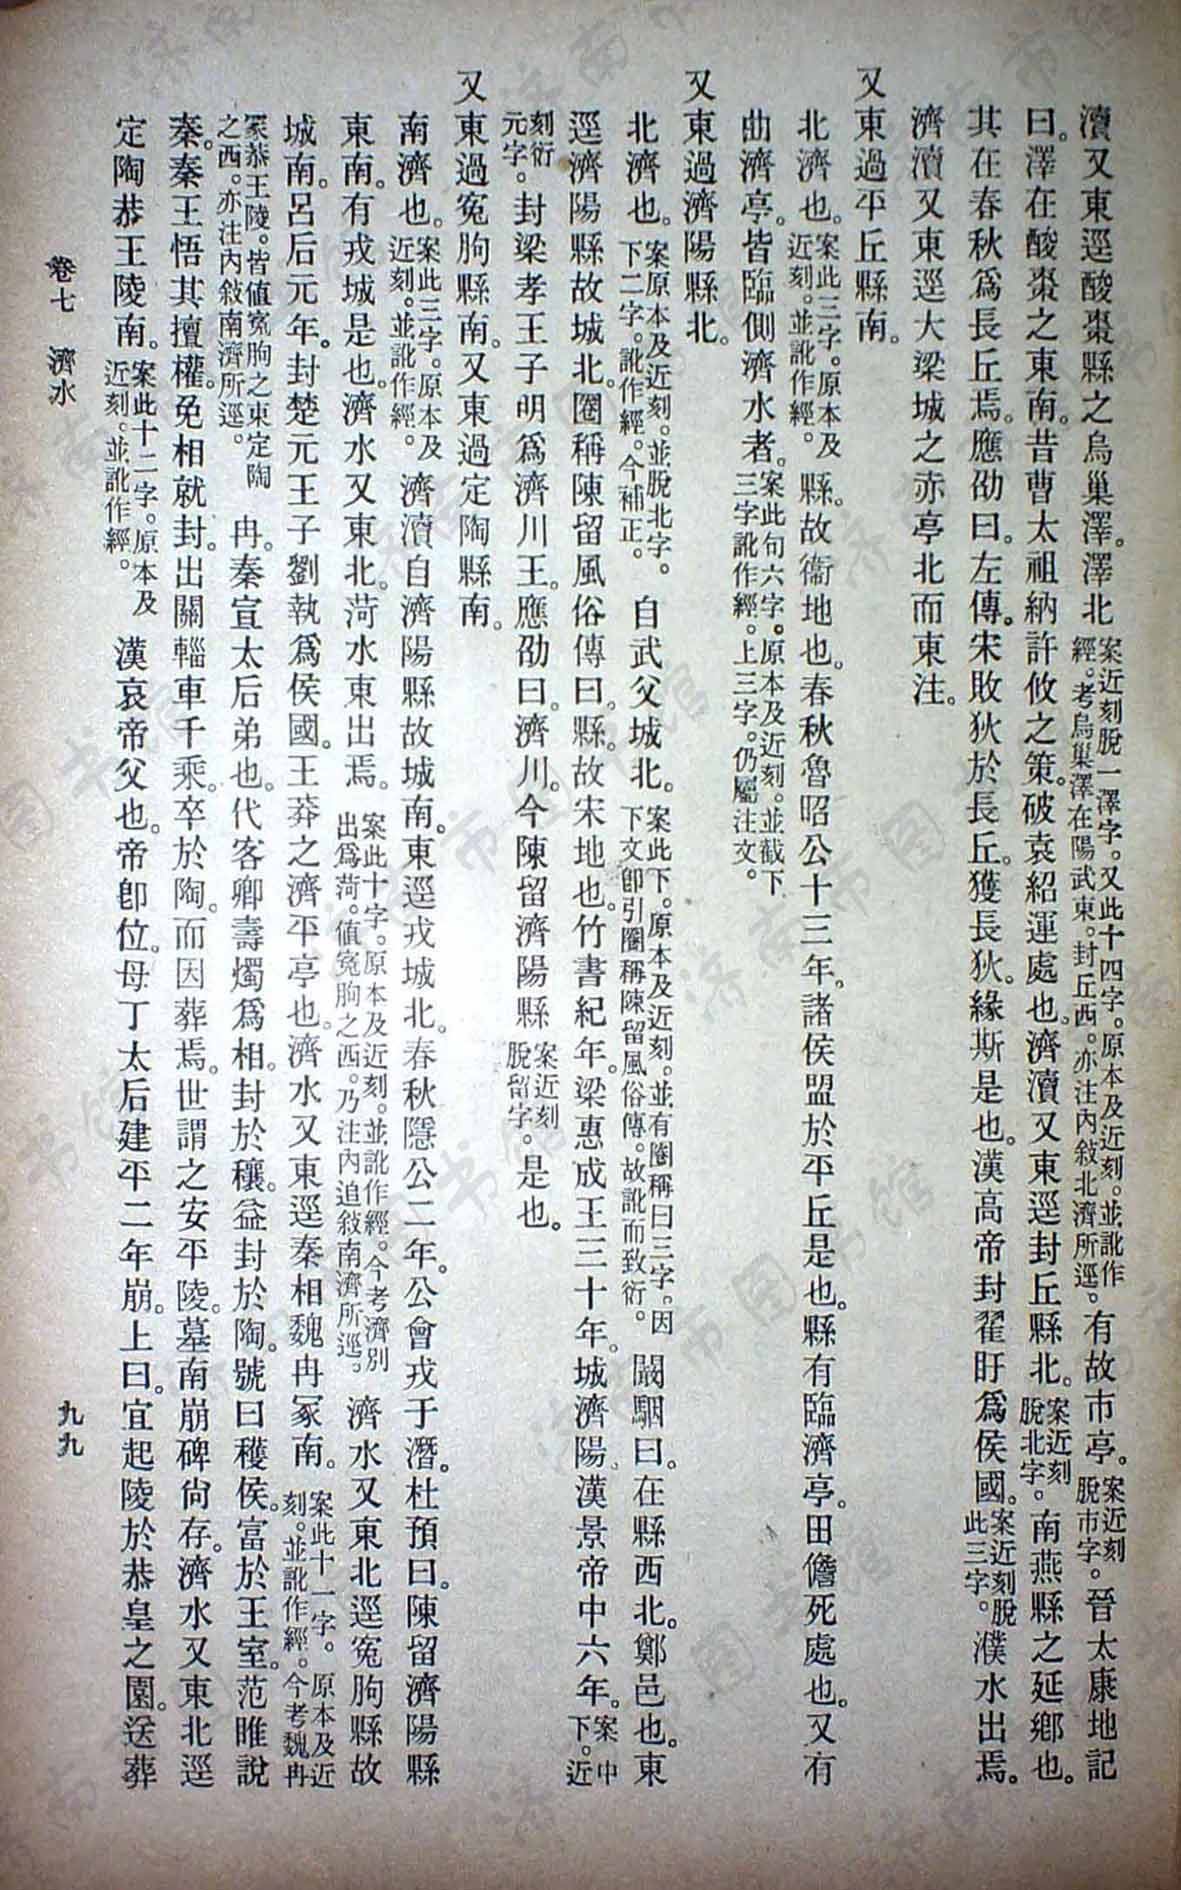 瀆又東逕酸棗縣之烏巢澤。澤北案近刻脫一澤字。又此十四字。原本及近刻。並訛作經。考烏巢澤在陽武東。封丘西。亦注內敍北濟所逕。有故市亭。案近刻脫市字。晉太康地記
曰。澤在酸棗之東南。昔曹太祖納許攸之策。破袁紹運處也。濟瀆又東逕封丘縣北。案近刻脫北字。南燕縣之延鄉也。
其在春秋爲長丘焉。應劭曰。左傳。宋敗狄於長丘。獲長狄。緣斯是也。漢高帝封翟盱爲侯國。案近刻脫此三字。濮水出焉。
濟瀆又東逕大梁城之赤亭北而東注。
又東過平丘縣南。
北濟也。案此三字。原本及近刻。並訛作經。縣。故衞地也。春秋魯昭公十三年。諸侯盟於平丘是也。縣有臨濟亭。田儋死處也。又有
曲濟亭。皆臨側濟水者。案此句六字。原本及近刻。並截下三字訛作經。上三字。仍屬注文。
又東過濟陽縣北。
北濟也。案原本及近刻。並脫北字。下二字。訛作經。今補正。自武父城北。案此下。原本及近刻。並有圈稱曰三字。因下文卽引圈稱陳留風俗傳。故訛而致衍。闞駰曰。在縣西北。鄭邑也。東
逕濟陽縣故城北。圈稱陳留風俗傳曰。縣。故宋地也。竹書紀年。梁惠成王三十年。城濟陽。漢景帝中六年。案中下。近
刻衍元字。封梁孝王子明爲濟川王。應劭曰。濟川。今陳留濟陽縣案近刻脫留字。是也。
又東過寃朐縣南。又東過定陶縣南。
南濟也。案此三字。原本及近刻。並訛作經。濟瀆自濟陽縣故城南。東逕戎城北。春秋隱公二年。公會戎于潛。杜預曰。陳留濟陽縣
東南。有戎城是也。濟水又東北。菏水東出焉。案此十字。原本及近刻。並訛作經。今考濟別出爲菏。値寃朐之西。乃注內追敍南濟所逕。濟水又東北逕寃朐縣故
城南。呂后元年。封楚元王子劉執爲侯國。王莽之濟平亭也。濟水又東逕秦相魏冉冢南。案此十一字。原本及近刻。並訛作經。今考魏冉
冢恭王陵。皆値寃朐之東定陶之西。亦注內敍南濟所逕。冉。秦宣太后弟也。代客卿壽燭爲相。封於穰。益封於陶。號曰穰侯。富於王室。范雎說
秦。秦王悟其擅權。免相就封。出關輜車千乘。卒於陶。而因葬焉。世謂之安平陵。墓南崩碑尙存。濟水又東北逕
定陶恭王陵南。案此十二字。原本及近刻。並訛作經。漢哀帝父也。帝卽位。母丁太后建平二年崩。上曰。宜起陵於恭皇之園。送葬
卷七 濟水
九九